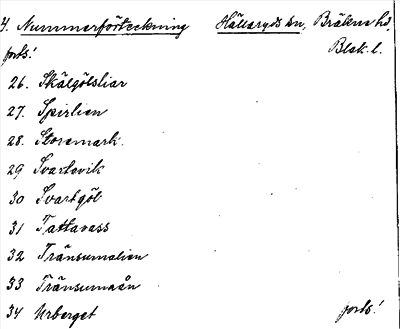 4. Nummerförteckning Hällaryds sn, Bräkne hd,
forts! Blek. l.
26. Skälgölsliar
27. Spirlien
28. Storemark.
29 Svartevik
30 Svartgöl
31 Tattavass
32 Tränsumalien
33 Tränsumaån
34 Urberget forts!